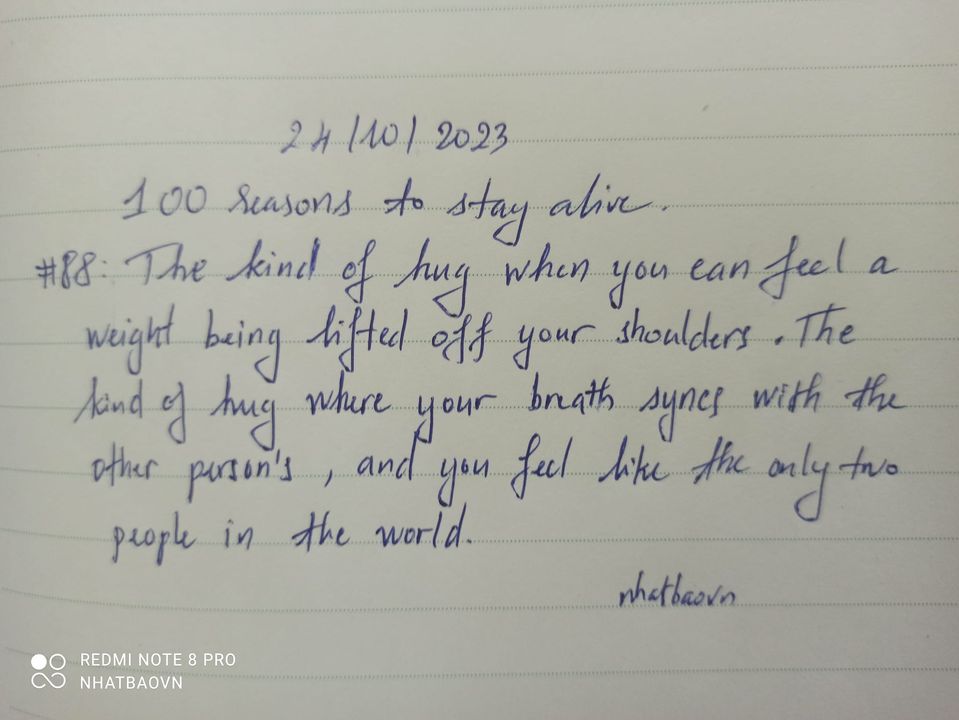 24/10/2023
100 reasons to stay alive.
#88: The kind of hug when you can feel a
weight being lifted off your shoulders. The
kind of hug where your breath syncs with the
other person's, and you feel like the only two
people in the world.
nhatbaovn
REDMI NOTE 8 PRO
NHATBAOVN